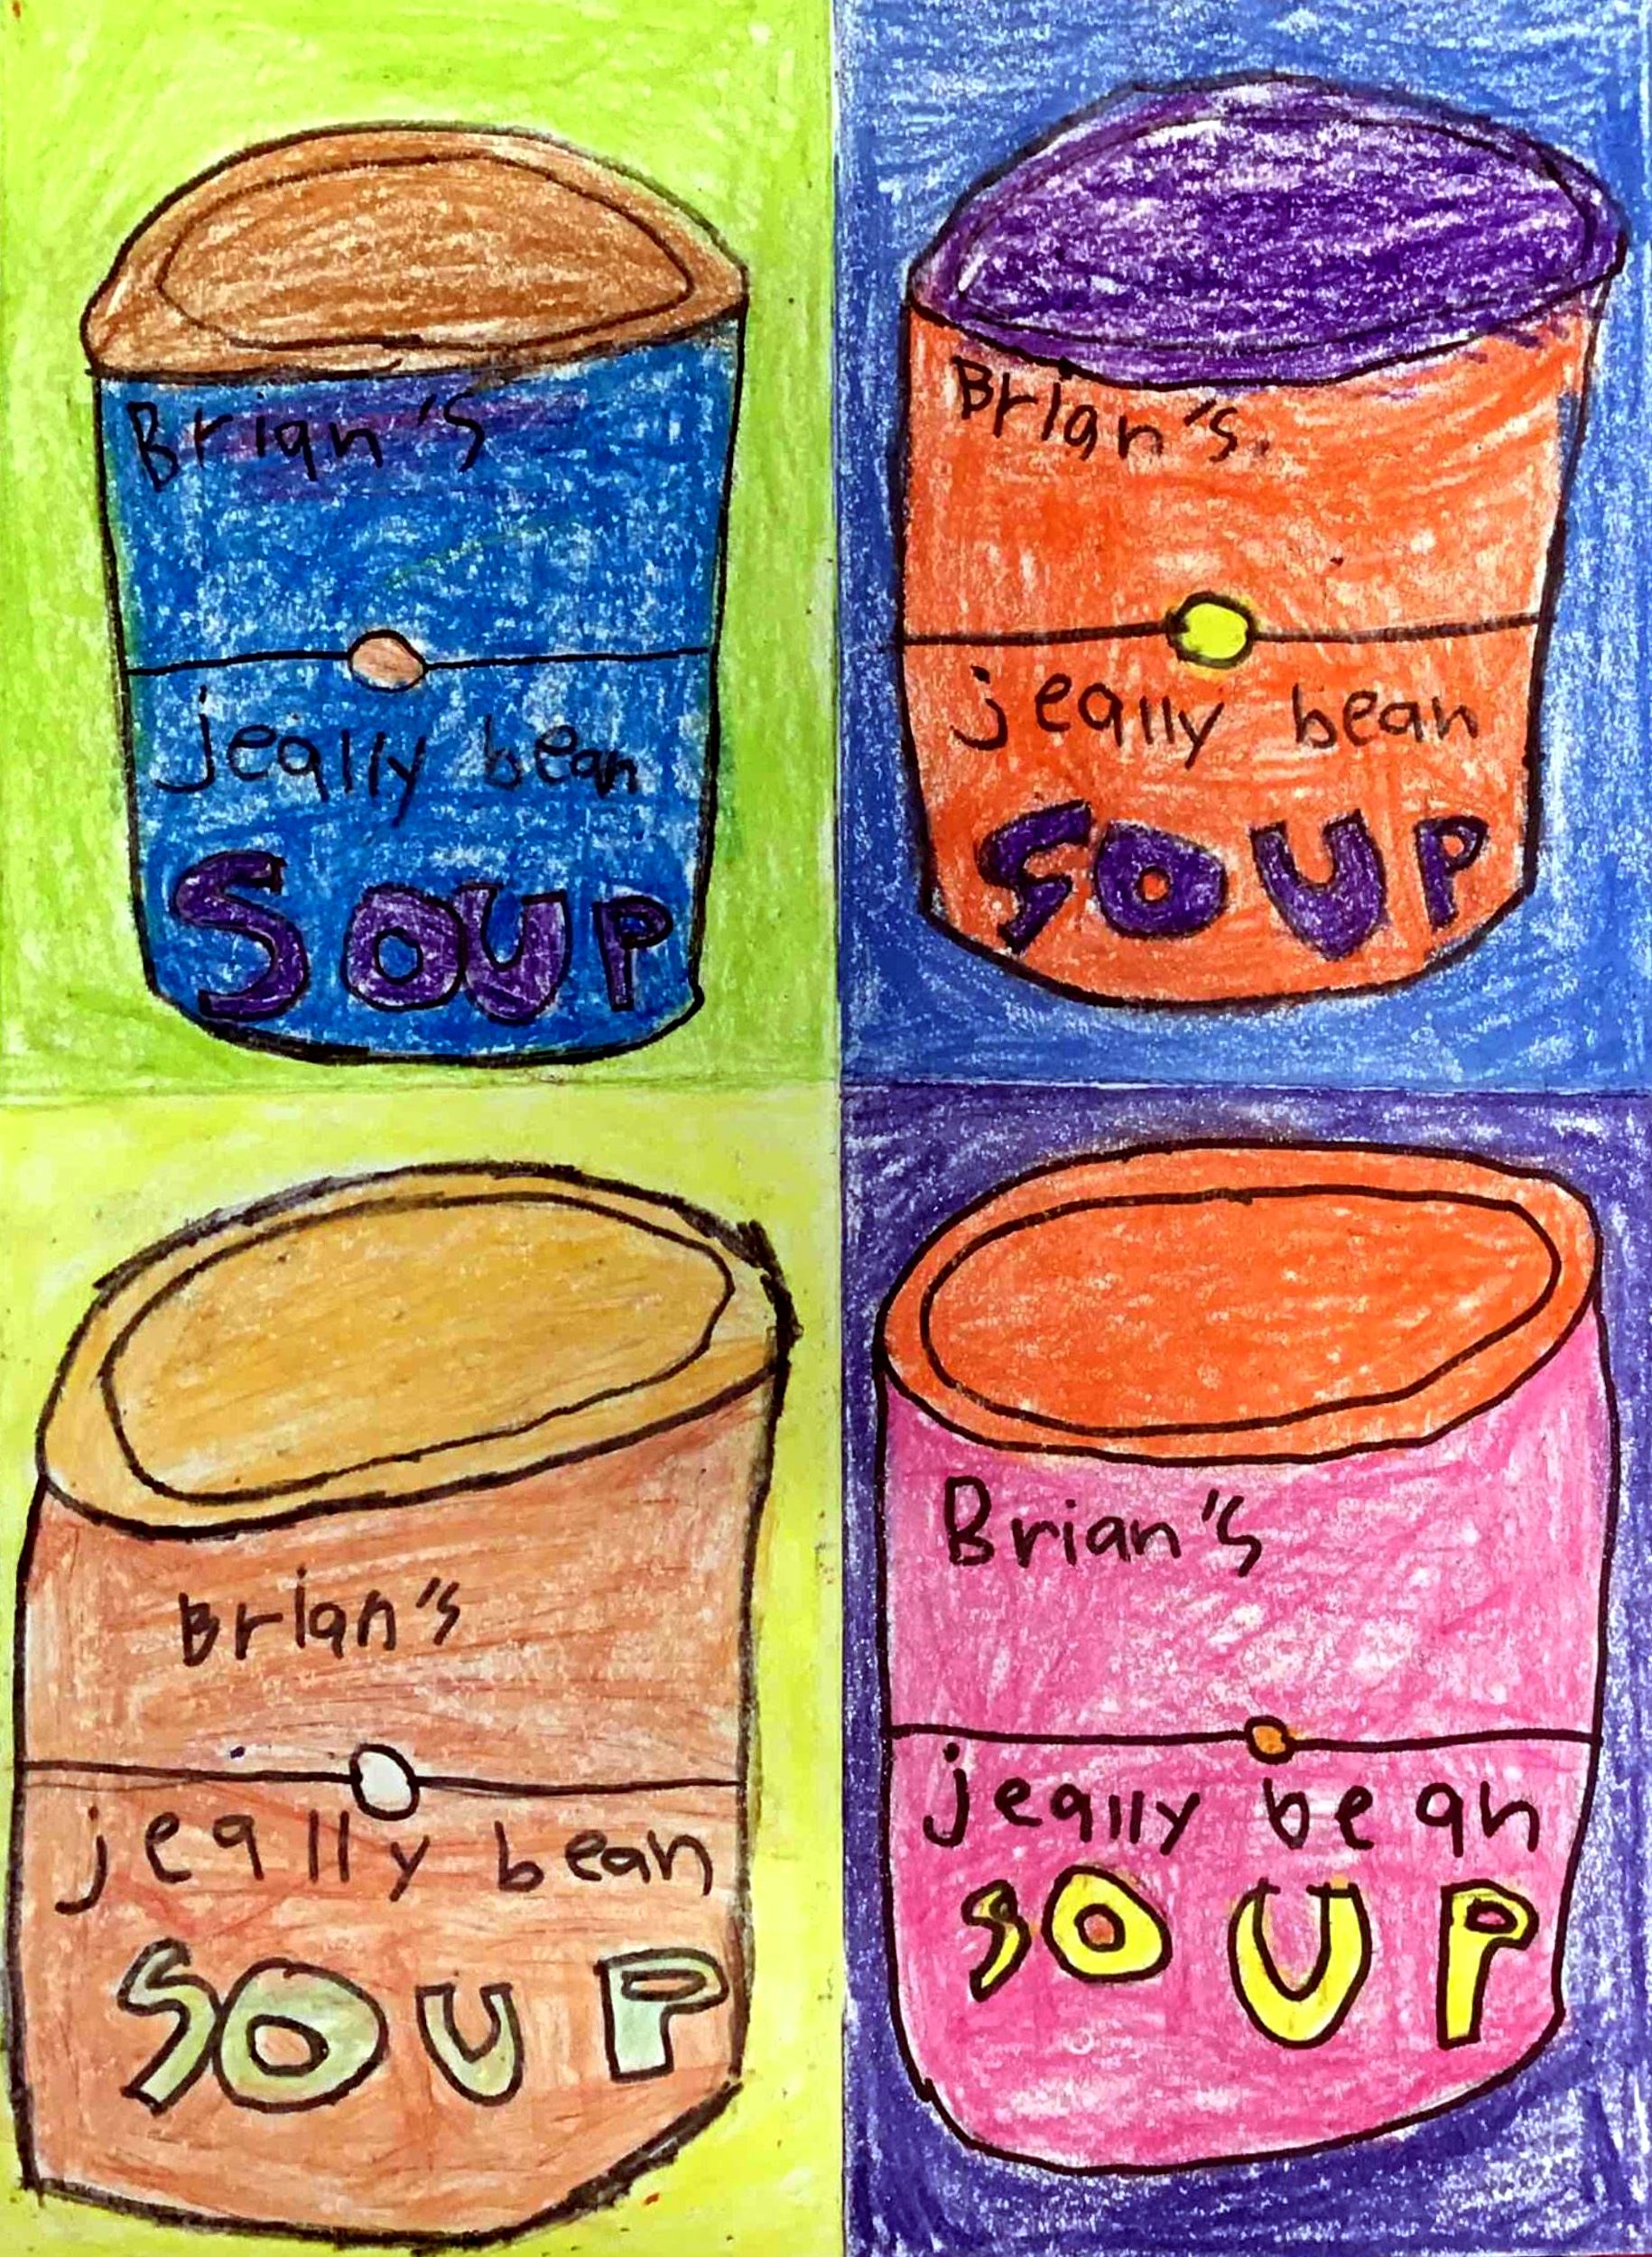 Brian's
jeally bean
SOUP
Brian's.
jeally bean
SOUP
Brian's
jeally bean
SOUP
Brian's
jeally bean
SOUP